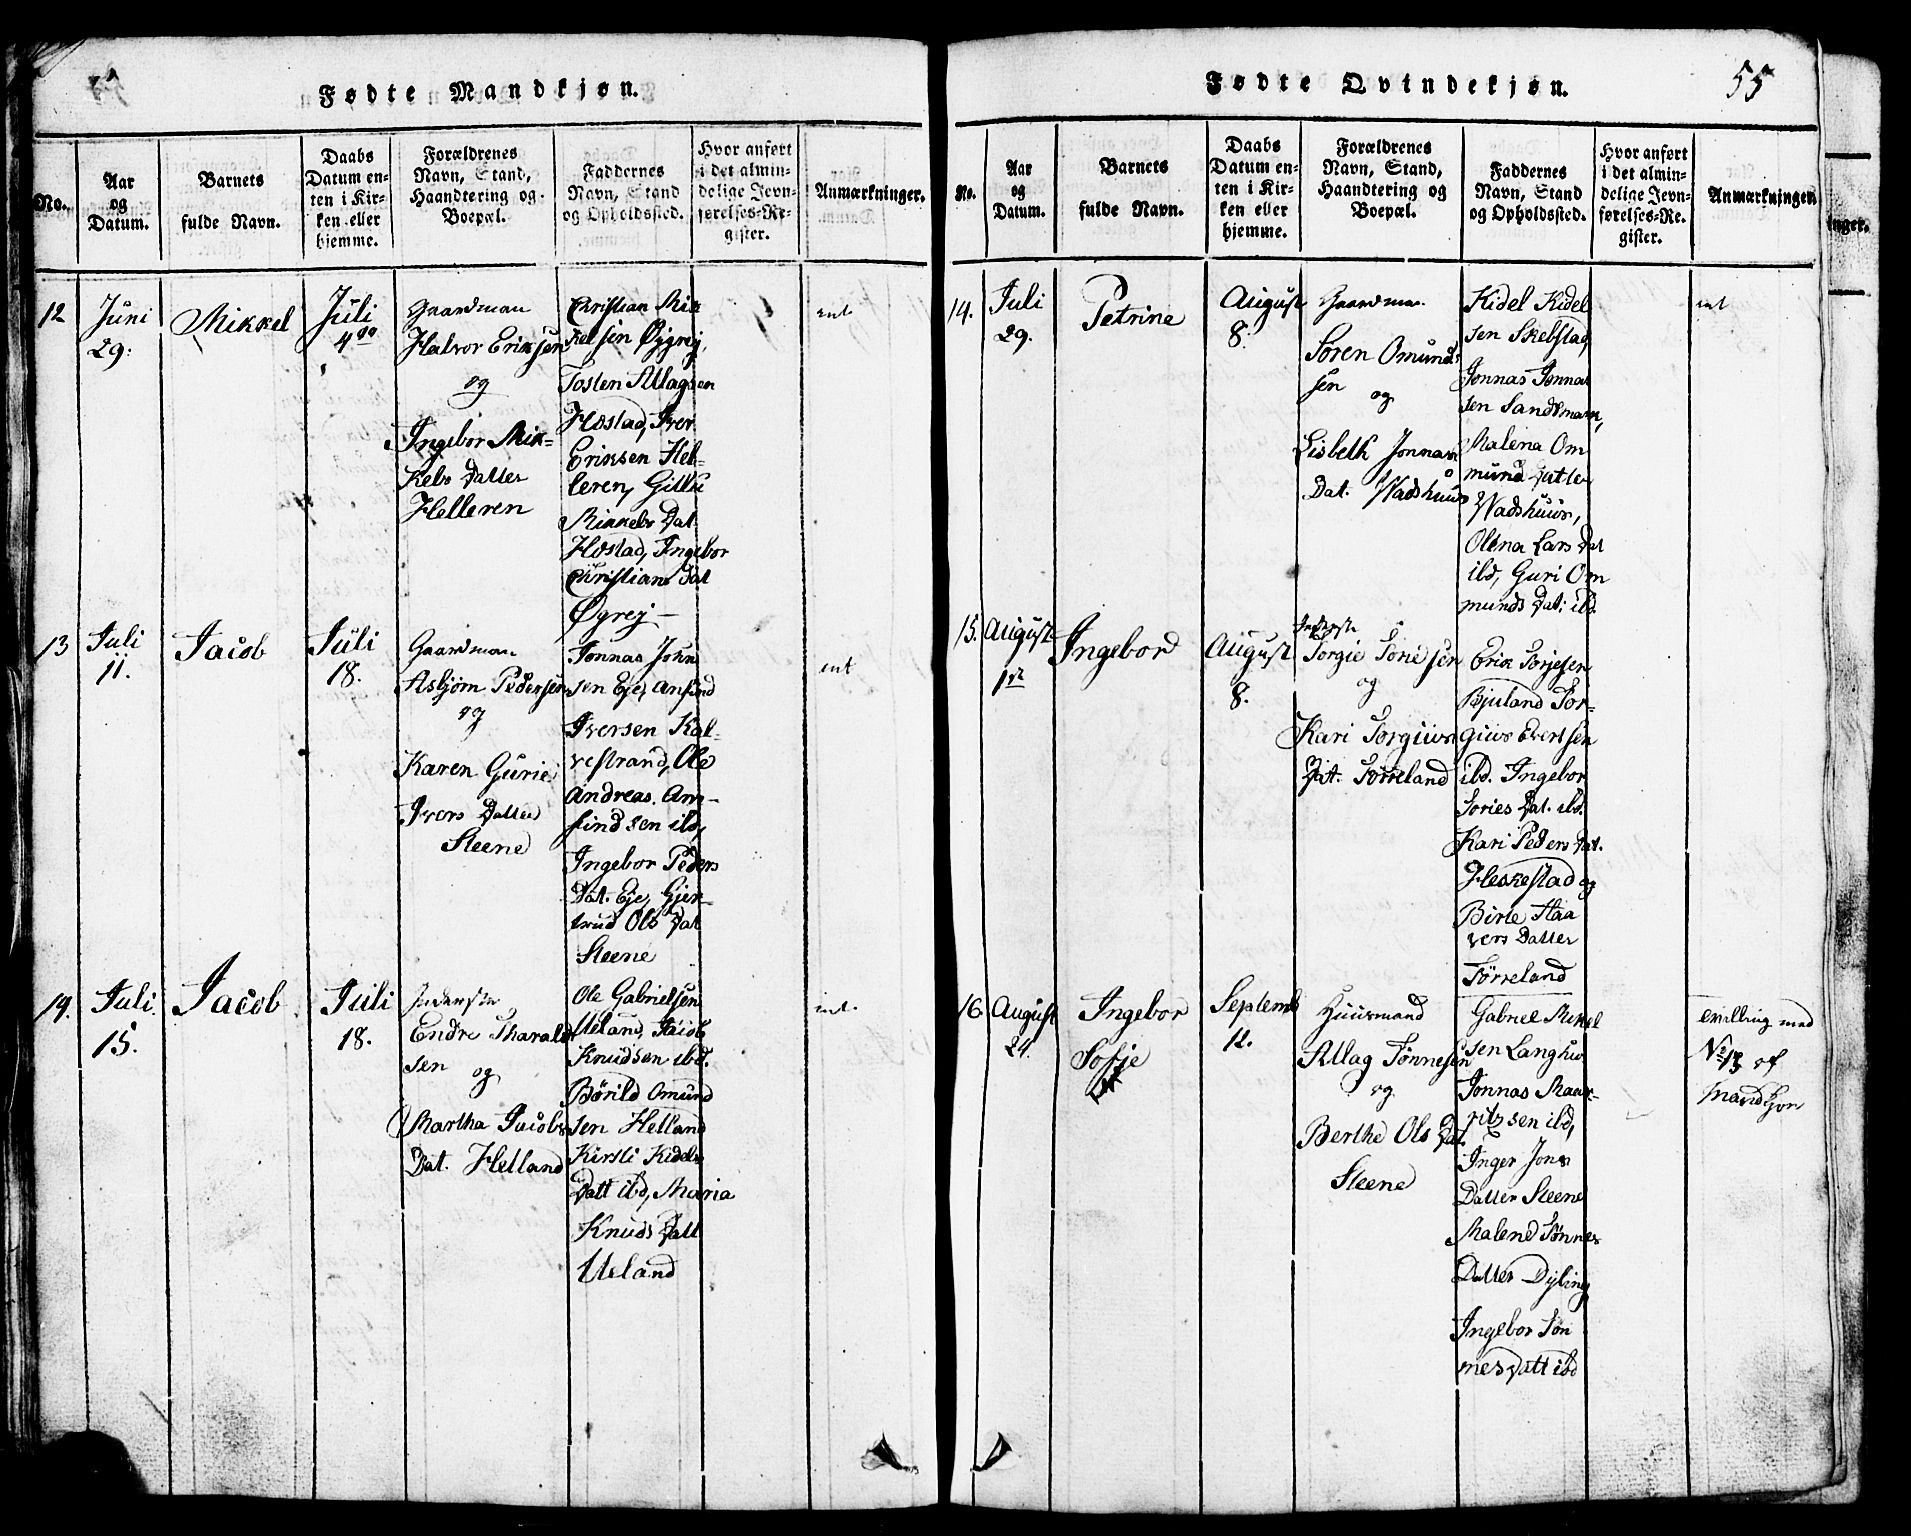 Fødte Mandkjøn.
No.
Aar
og
Datum.
Barnets
fulde Navn.
Daabs
Datum en-
ten i Kir-
ken eller
hjemme.
Forældrenes
Navn, Stand,
Haandtering og
Boepæl.
Faddernes
Navn, Stand
og Opholdssted.
Hvor anført
i det almin-
delige Jevn-
førelses-Re-
gister.
Anmærkninger.
12
Juni
29.
Mikkel
Juli
4de
Gaardman
Halvor Eriksen
og
Ingebor Mik-
kels Datter
Helleren
Christian Mik
kelsen Øygrej,
Tosten Allagsen
Hostad, Iver
Eriksen Hel-
leren, Gitlu
Mikkels Dat.
Hostad, Ingebor
Christians Dat
Øgrej
ent
13
Juli
11.
Jacob
Juli
18.
Gaardman
Asbjørn Pedersen
og
Karen Gurie
Ivers Datter
Steene
Jonnas John
sen Eje, Anfind
Iversen Kal-
vestrand, Ole
Andreas. An-
find sen ibd,
Ingebor Peders
Dat. Eje, Gjer-
trud Ols Dat
Steene
ent
14.
Juli
15.
Jacob
Juli
18.
Inderste
Endre Tharald
sen
og
Martha Jacobs
Dat. Helland
Ole Gabrielsen
Ueland, Jacob
Knudsen ibd.
Børild Omund
sen Helland
Kirsti Kidels
Datt ibd, Maria
Knuds Datt
Ueland
ent.
Fødte Qvindekjøn.
55
No.
Aar
og
Datum.
Barnets
fulde Navn.
Daabs
Datum en-
ten i Kir-
ken eller
hjemme.
Forældrenes
Navn, Stand,
Haandtering og
Boepæl.
Faddernes
Navn, Stand
og Opholdssted.
Hvor anført
i det almin-
delige Jevn-
førelses-Re-
gister.
Anmærkninger.
inger.
14.
Juli
29.
Petrine
August
8.
Gaardman
Søren Omund
sen
og
Lisbeth Jonnas
Dat. Wadshuus
Kidel Kidel
sen Skelstad,
Jonnas Jonna
sen Sandsmark,
Malena Om
mund Datter
Wadshuus,
Olena Lars Dat
ibd, Guri Om
munds Dat. ibd.
ent
15.
August
1st
Ingebord
August
8.
Inderste
Torgie Torie sen
og
Kari Torgiurs
Dat. Tørreland
Erik Torjesen
Bjuland Tor-
gius Evertsen
ibd. Ingebor
Tories Dat. ibd.
Kari Peders Dat.
Heskestad og
Birte Haa
vers Datter
Tørreland
16
August
24.
Ingebor
Sofje
Septemb
12.
Huusmand
Allag Tønnesen
og
Berthe Ols Dat.
Steene
Gabriel Mikel
sen Langhu
Jonnas Maur-
ritz sen ibd,
Inger Jons
Datter Steene
Malene Tønnes
Datter Dybing
Ingebor Tøn
nes Datt ibd
tvilling med
No 13 af
Mandkjøn